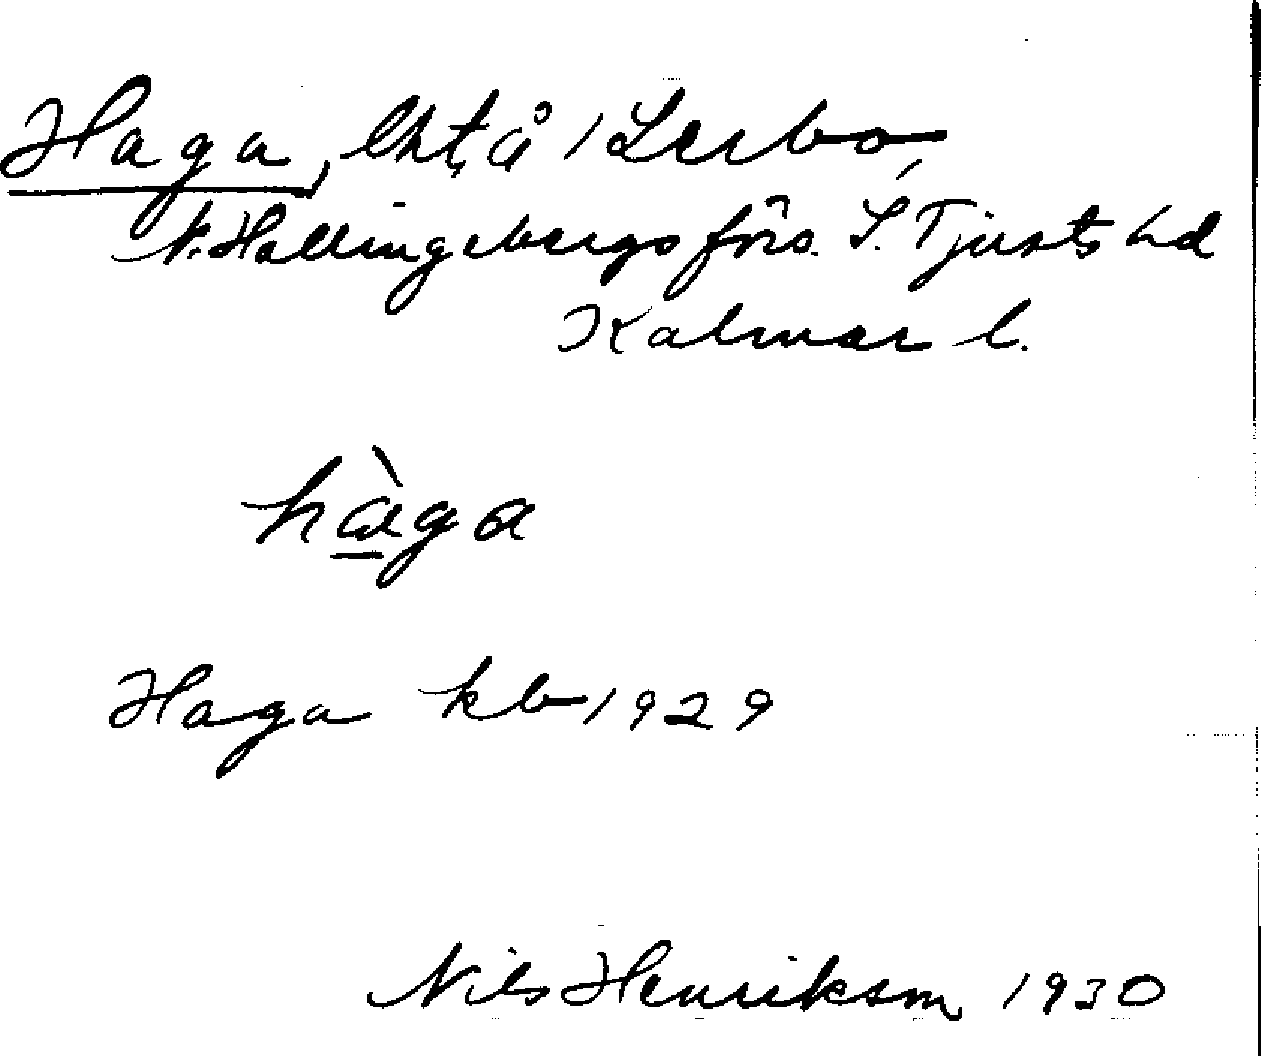 Haga, lht, å 1 Lerbo,
V. Hallingebergs förs. S. Tjusts hd
Kalmar l.
hàga
Haga kb 1929
Nils Henrikson 1930